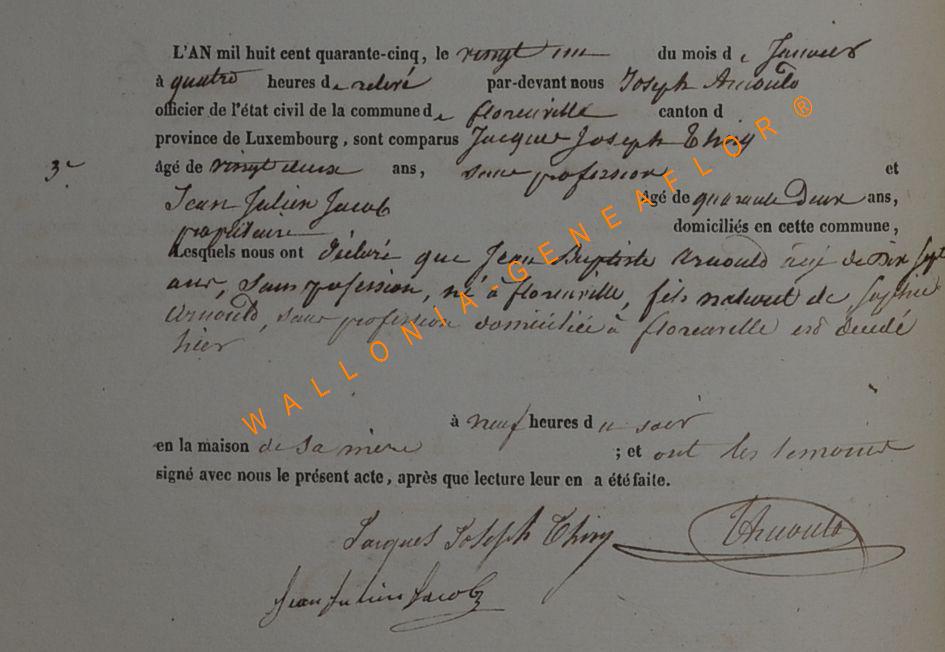 L'AN mil huit cent quarante-cinq, le vingt un du mois de Janvier
à quatre heures de relevé par-devant nous Joseph Arnould
officier de l'état civil de la commune de florenville canton d
province de Luxembourg, sont comparus Jacques Joseph Thiry
3e âgé de vingt deux ans, sans profession et
Jean Julien Jacob âgé de quarante Deux ans,
propriétaire domiciliés en cette commune,
Lesquels nous ont déclaré que Jean Baptiste Arnould agé de Dix Sept
ans, sans profession, né à florenville, fils naturel de Sophie
Arnould, sans profession domiciliée à florenville est decedé
hier
à neuf heures du soir
en la maison de sa mère ; et ont les temoins
signé avec nous le présent acte, après que lecture leur en a été faite.
Jacques Joseph Thiry JArnould
Jean Julien Jacob
WALLONIA-GENEAFLOR®